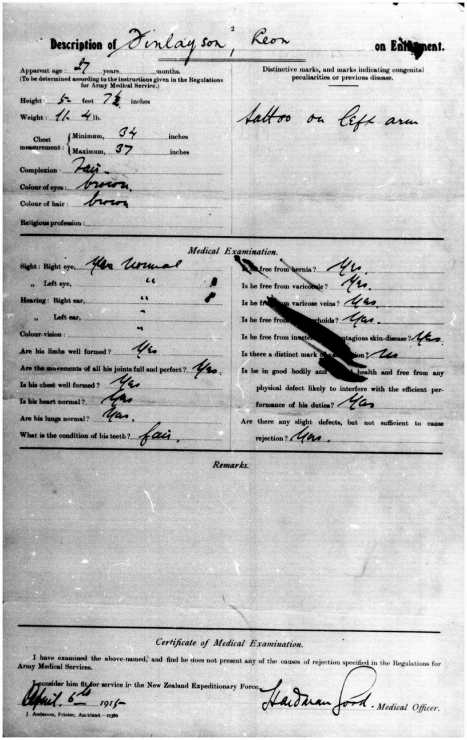 2
Description of Finlayson, Leon on Enlistment.
Apparent age: 27 years months.
(To be determined according to the instructions given in the Regulations
for Army Medical Service.)
Height: 5 feet 7½ inches
Weight: 4 lb.
Chest measurement: Minimum, 34 inches
Maximum, 37 inches
Complexion: Fair
Colour of eyes: brown
Colour of hair: brown
Religious profession:
Distinctive marks, and marks indicating congenital
peculiarities or previous disease.
tattoo on left arm
Medical Examination.
Sight: Right eye, normal
„ Left eye, "
Hearing: Right ear, "
„ Left ear, "
Colour-vision: "
Are his limbs well formed? Yes
Are the movements of all his joints full and perfect? Yes.
Is his chest well formed? Yes
Is his heart normal? Yes
Are his lungs normal? Yes.
What is the condition of his teeth? fair.
free from hernia? Yes.
Is he free from varicocele? Yes.
Is he free from varicose veins? Yes
Is he free Yes.
Is he free from contagious skin-disease? Yes.
Is there a distinct mark of Yes
Is he in good bodily and health and free from any
physical defect likely to interfere with the efficient per-
formance of his duties? Yes
Are there any slight defects, but not sufficient to cause
rejection? Yes.
Remarks.
Certificate of Medical Examination.
I have examined the above-named, and find he does not present any of the causes of rejection specified in the Regulations for
Army Medical Services.
I consider him fit for service in the New Zealand Expeditionary Force.
April 6th 1915 Medical Officer.
J. Anderson, Printer, Auckland.